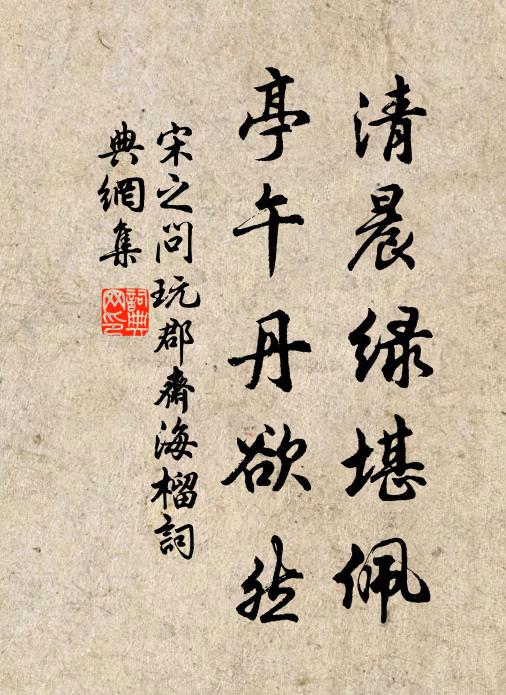 清晨绿堪佩
亭午丹欲然
宋之问玩郡斋海榴詞
典網集
詞典网印